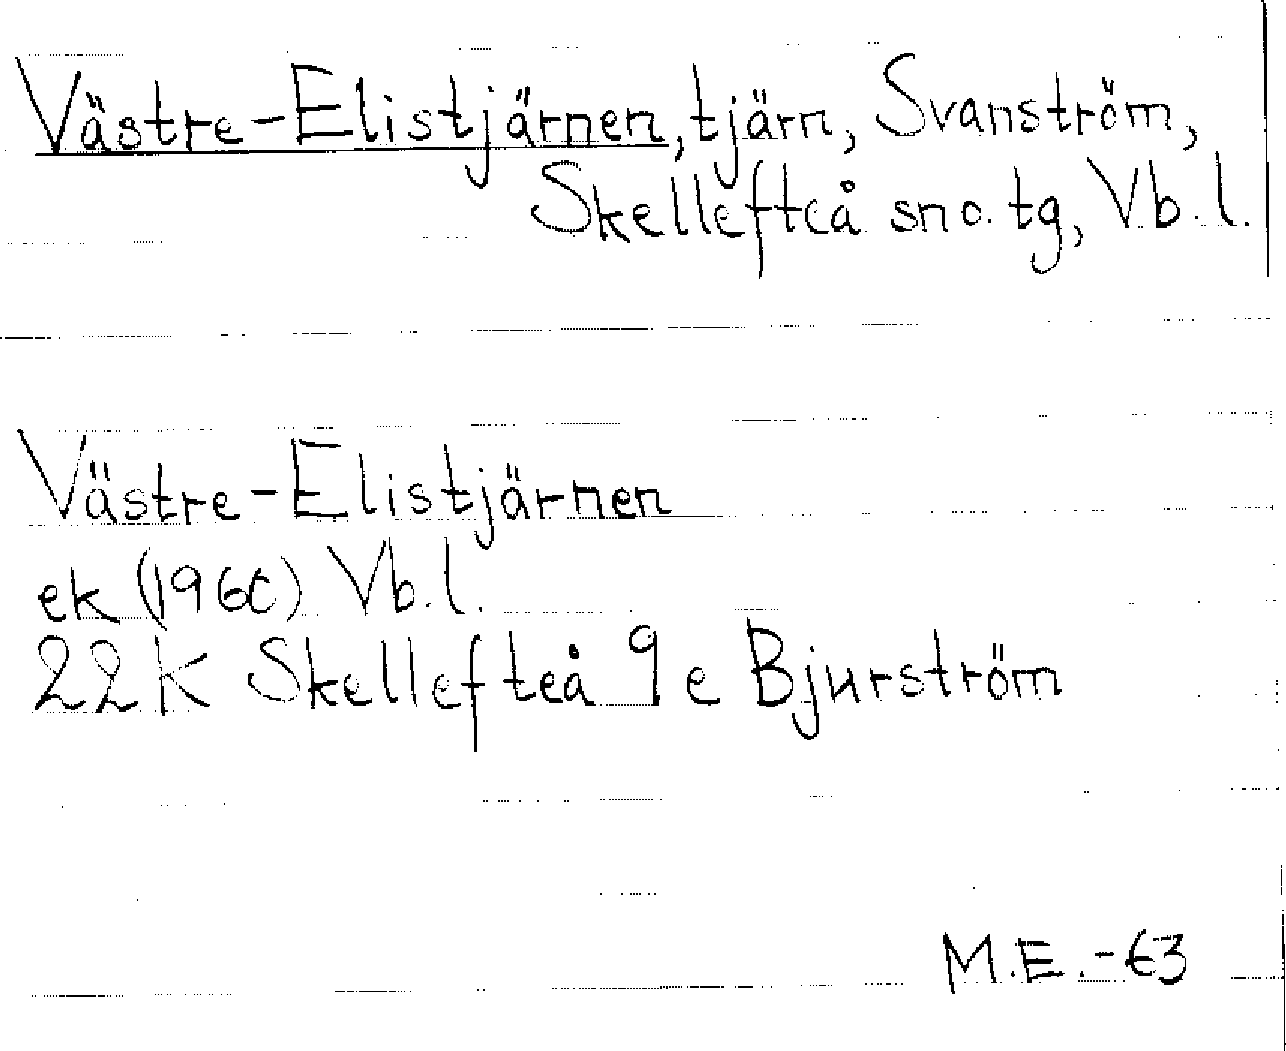 Västre-Elistjärnen, tjärn, Svanström,
Skellefteå sno. tg, Vb. l.
Västre-Elistjärnen
ek (1960) Vb. l.
22K Skellefteå 9e Bjurström
M.E.-63